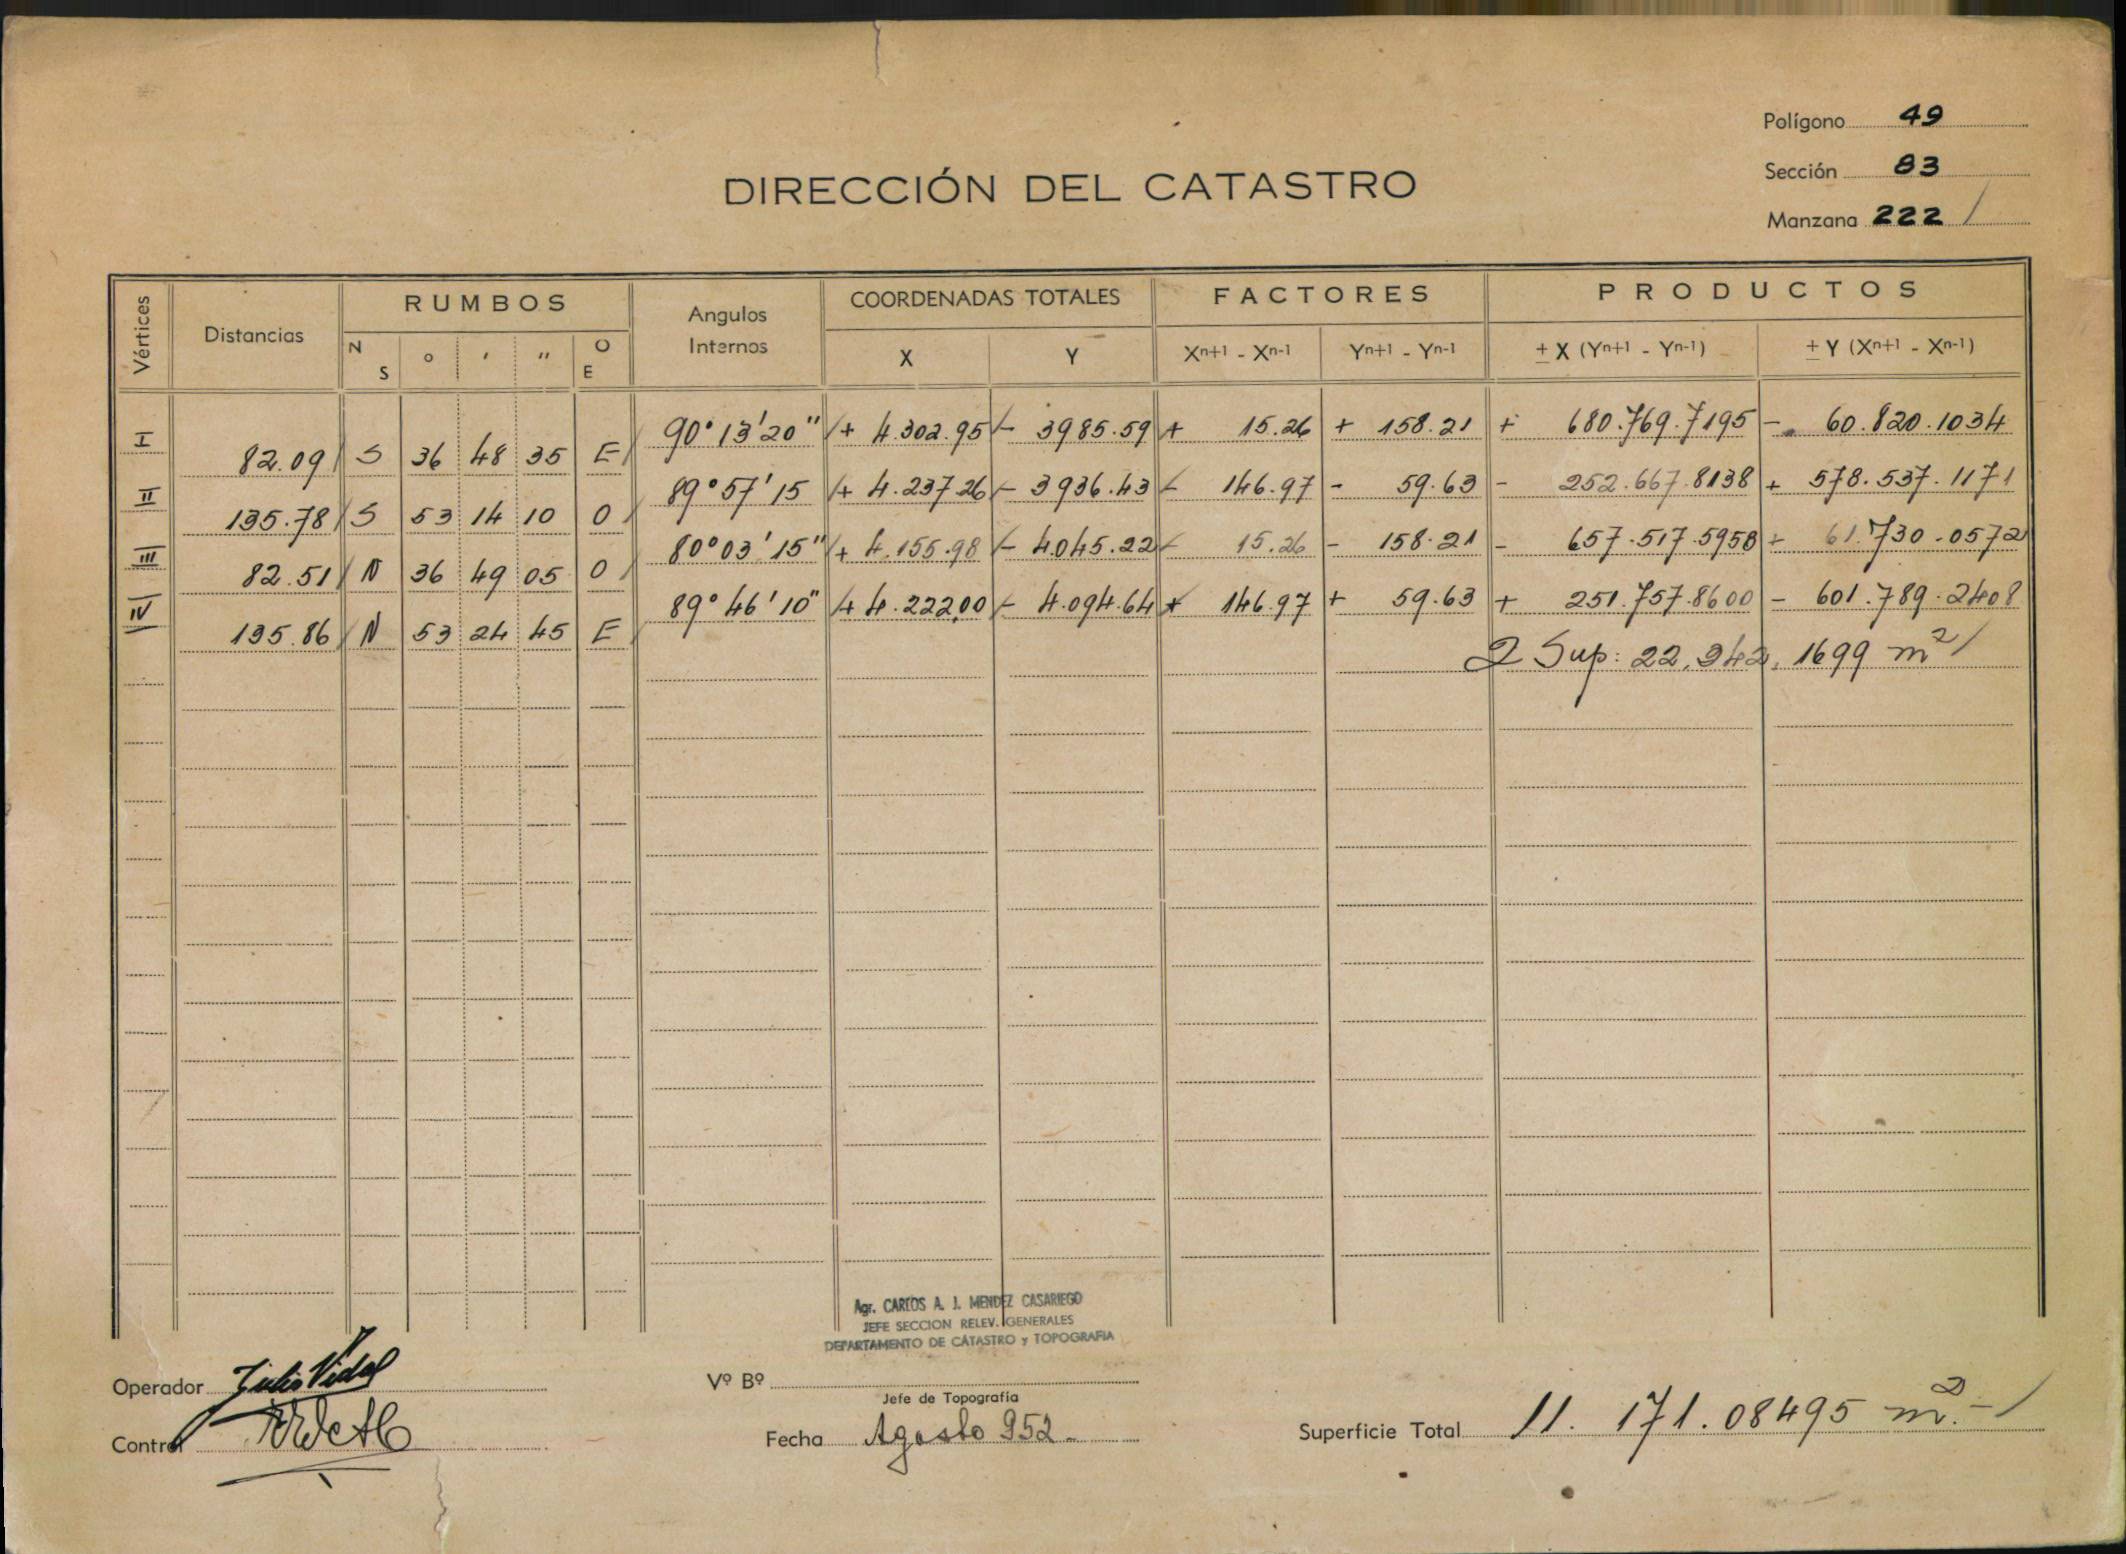 Polígono 49
Sección 83
Manzana 222 /
DIRECCIÓN DEL CATASTRO
Vértices Distancias RUMBOS Angulos Internos COORDENADAS TOTALES FACTORES PRODUCTOS
N S ° ' " O E X Y Xn+1 - Xn-1 Yn+1 - Yn-1 ± X (Yn+1 - Yn-1) ± Y (Xn+1 - Xn-1)
I 90° 13' 20" /+ 4.302.95 /- 3985.59 + 15.26 + 158.21 + 680.769.7195 - 60.820.1034
82.09 / S 36 48 35 E /
II 89° 57' 15 /+ 4.237.26 /- 3936.43 - 146.97 - 59.63 - 252.667.8138 + 578.537.1171
135.78 / S 53 14 10 O /
III 80° 03' 15" /+ 4.155.98 /- 4.045.22 - 15.26 - 158.21 - 657.517.5958 + 61.730.0572
82.51 / N 36 49 05 O /
IV 89° 46' 10" /+ 4.222,00 /- 4.094.64 + 146.97 + 59.63 + 251.757.8600 - 601.789.2408
135.86 / N 53 24 45 E /
2 Sup: 22,342,1699 m² /
Agr. CARLOS A. J. MENDEZ CASARIEGO
JEFE SECCION RELEV. GENERALES
DEPARTAMENTO DE CATASTRO y TOPOGRAFIA
Operador Julio Vidal
Vº Bº
Jefe de Topografía
Control
Fecha Agosto 952.
Superficie Total 11.171.08495 m².- /